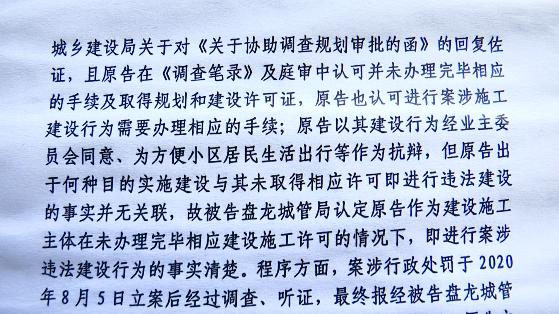 城乡建设局关于对《关于协助调查规划审批的函》的回复佐
证，且原告在《调查笔录》及庭审中认可并未办理完毕相应
的手续及取得规划和建设许可证，原告也认可进行案涉施工
建设行为需要办理相应的手续；原告以其建设行为经业主委
员会同意、为方便小区居民生活出行等作为抗辩，但原告出
于何种目的实施建设与其未取得相应许可即进行违法建设
的事实并无关联，故被告盘龙城管局认定原告作为建设施工
主体在未办理完毕相应建设施工许可的情况下，即进行案涉
违法建设行为的事实清楚。程序方面，案涉行政处罚于2020
年8月5日立案后经过调查、听证，最终报经被告盘龙城管